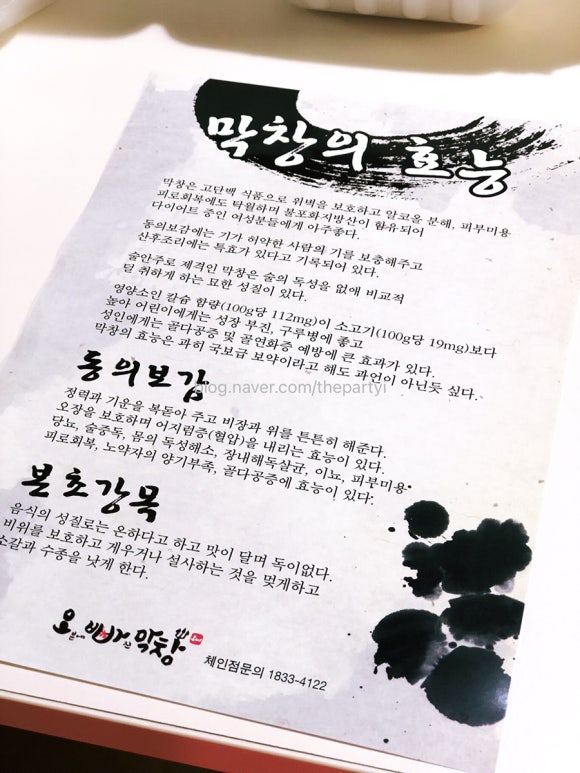 막창의 효능
막창은 고단백 식품으로 위벽을 보호하고 알코올 분해, 피부미용
피로회복에도 탁월하며 불포화지방산이 함유되어
다이어트 중인 여성분들에게 아주좋다.
동의보감에는 기가 허약한 사람의 기를 보충해주고
산후조리에는 특효가 있다고 기록되어 있다.
술안주로 제격인 막창은 술의 독성을 없애 비교적
덜 취하게 하는 묘한 성질이 있다.
영양소인 칼슘 함량(100g당 112mg)이 소고기(100g당 19mg)보다
높아 어린이에게는 성장 부진, 구루병에 좋고
성인에게는 골다공증 및 골연화증 예방에 큰 효과가 있다.
막창의 효능은 과히 국보급 보약이라고 해도 과언이 아닌듯 싶다.
동의보감
blog.naver.com/thepartyi
정력과 기운을 복돋아 주고 비장과 위를 튼튼히 해준다.
오장을 보호하며 어지럼증(혈압)을 내리는 효능이 있다.
당뇨, 술중독, 몸의 독성해소, 장내해독살균, 이뇨, 피부미용
피로회복, 노약자의 양기부족, 골다공증에 효능이 있다.
본초강목
음식의 성질로는 온하다고 하고 맛이 달며 독이없다.
비위를 보호하고 게우거나 설사하는 것을 멎게하고
소갈과 수종을 낫게 한다.
오빠야 막창
체인점문의 1833-4122